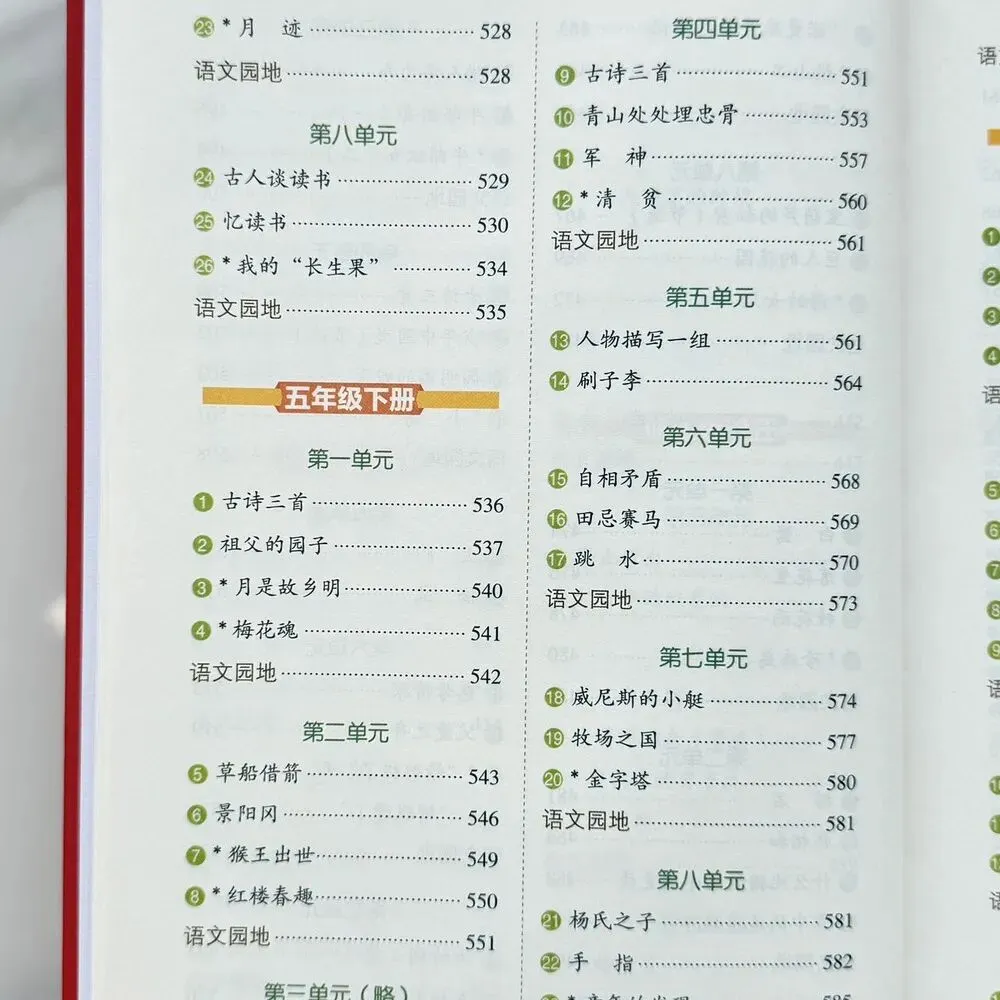 23 *月 迹 528
语文园地 528
第八单元
24 古人谈读书 529
25 忆读书 530
26 *我的“长生果” 534
语文园地 535
五年级下册
第一单元
1 古诗三首 536
2 祖父的园子 537
3 *月是故乡明 540
4 *梅花魂 541
语文园地 542
第二单元
5 草船借箭 543
6 景阳冈 546
7 *猴王出世 549
8 *红楼春趣 550
语文园地 551
第三单元（略）
第四单元
9 古诗三首 551
10 青山处处埋忠骨 553
11 军 神 557
12 *清 贫 560
语文园地 561
第五单元
13 人物描写一组 561
14 刷子李 564
第六单元
15 自相矛盾 568
16 田忌赛马 569
17 跳 水 570
语文园地 573
第七单元
18 威尼斯的小艇 574
19 牧场之国 577
20 *金字塔 580
语文园地 581
第八单元
21 杨氏之子 581
22 手 指 582